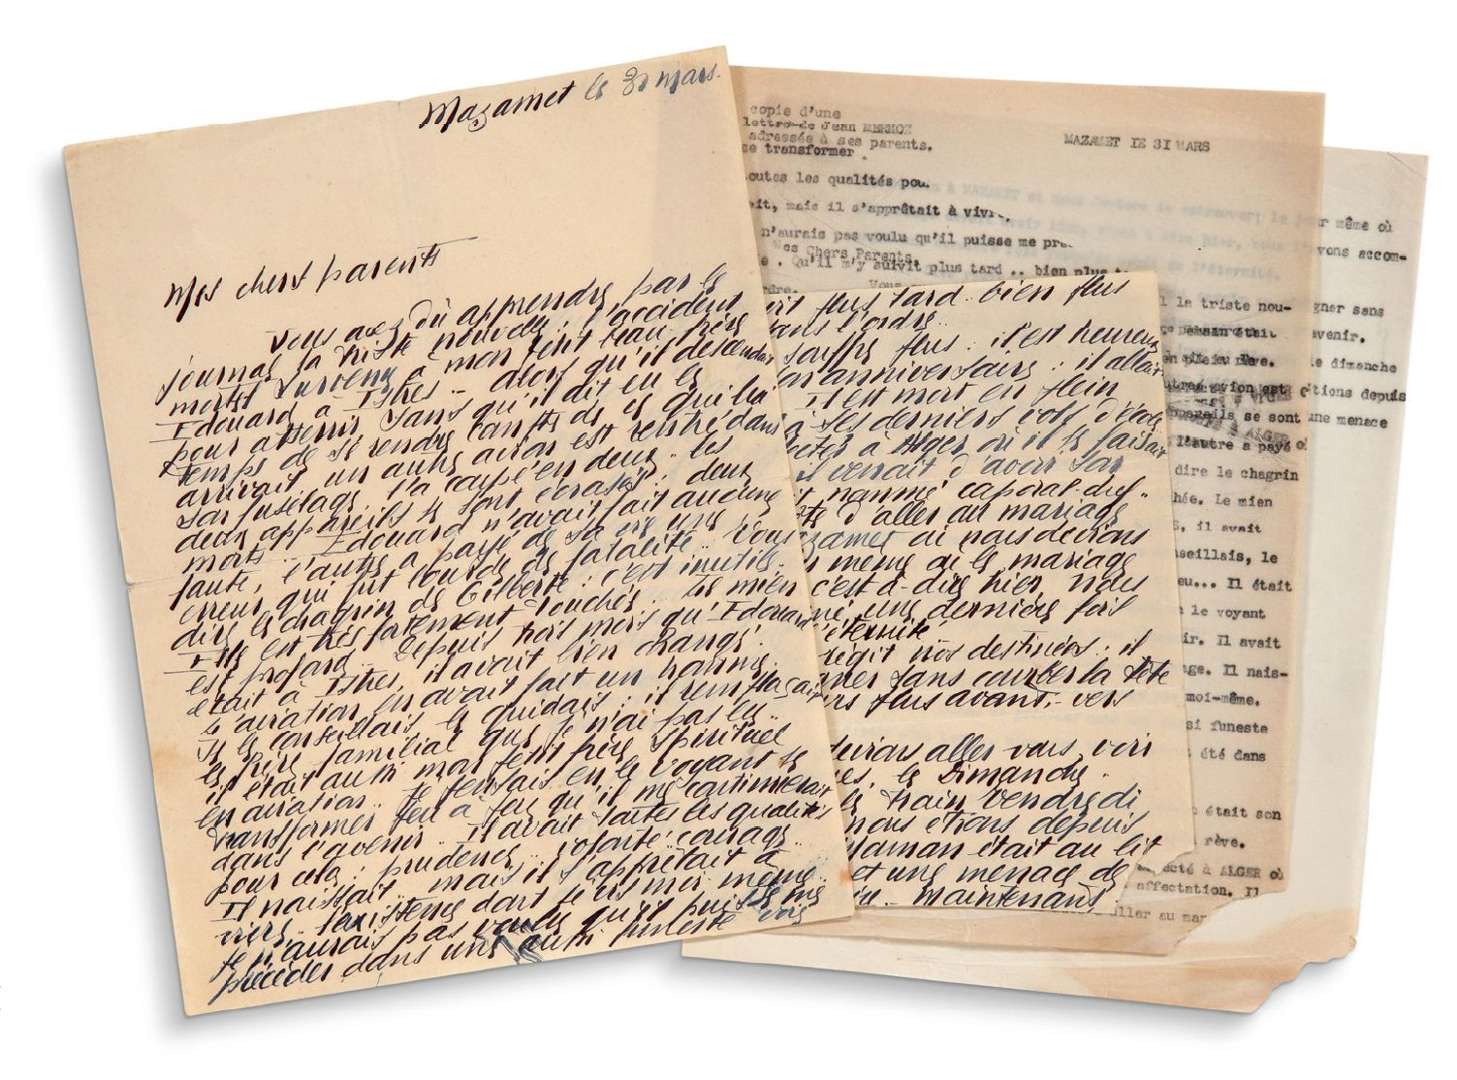 Mazamet le 31 mars.
Mes chers parents
Vous avez dû apprendre par le
journal la triste nouvelle : l'accident
mortel survenu à mon petit beau-frère
Edouard à Istres - alors qu'il descendait
pour atterrir sans qu'il ait eu le
temps de se rendre compte de ce qui lui
arrivait un autre avion est rentré dans
son fuselage l'a coupé en deux. les
deux appareils se sont écrasés : deux
morts. Edouard n'avait fait aucune
faute, l'autre a payé de sa vie une
erreur qui fut lourde de fatalité. Vous
dire le chagrin de Gilberte : c'est inutile.
Elle est très fortement touchée. Le mien
est profond. Depuis trois mois qu'Edouard
était à Istres, il avait bien changé.
L'aviation en avait fait un homme.
Je le conseillais le guidais : il remplaçait
le frère familial que je n'ai pas eu..
il était aussi mon petit frère spirituel
en aviation.. Je pensais en le voyant se
transformer peu à peu qu'il me continuerait
dans l'avenir. Il avait toutes les qualités
pour cela : prudence.. volonté.. courage..
Il naissait.. mais il s'apprêtait à
vivre l'existence dont je vis moi même..
Je n'aurais pas voulu qu'il puisse me
précéder dans une aussi funeste voie
plus tard.. bien plus
dans l'ordre..
souffre plus.. il est heureux
anniversaire : il allait
Il est mort en plein
à ses derniers vols d'école
à Alger où il se faisait
il venait d'avoir son
nommé caporal-chef..
d'aller au mariage
où nous devions
même où le mariage
c'est-à-dire hier, nous
une dernière fois
l'éternité
régit nos destinées : il
sans courber la tête
plus avant,- vers
devions aller vous voir
le Dimanche.
le train Vendredi
nous étions depuis
Maman était au lit
et une menace de
Maintenant
copie d'une
lettre de Jean MERMOZ
adressée à ses parents.
MAZAMET LE 31 MARS
se transformer
toutes les qualités pou
ait, mais il s'apprêtait à vivre
n'aurais pas voulu qu'il puisse me pré
Mes Chers Parents,
Qu'il m'y suivit plus tard .. bien plus
ordre.
Vous
r même où
vons accom-
l la triste nou-
gner sans
avenir.
le dimanche
autre avion est
étions depuis
appareils se sont
une menace
l'autre a payé
dire le chagrin
hée. Le mien
il avait
nseillais, le
eu... Il était
le voyant
ir. Il avait
age. Il nais-
moi-même.
si funeste
été dans
était son
rêve.
ecté à ALGER où
affectation. Il
ller au mar